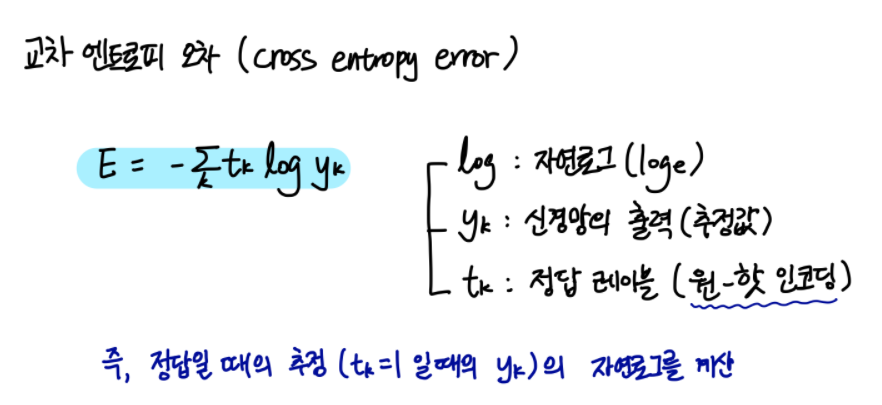 교차 엔트로피 오차 (cross entropy error)
E = -∑k tk log yk
log : 자연로그 (loge)
yk : 신경망의 출력 (추정값)
tk : 정답 레이블 (원-핫 인코딩)
즉, 정답일 때의 추정 (tk=1 일때의 yk)의 자연로그를 계산